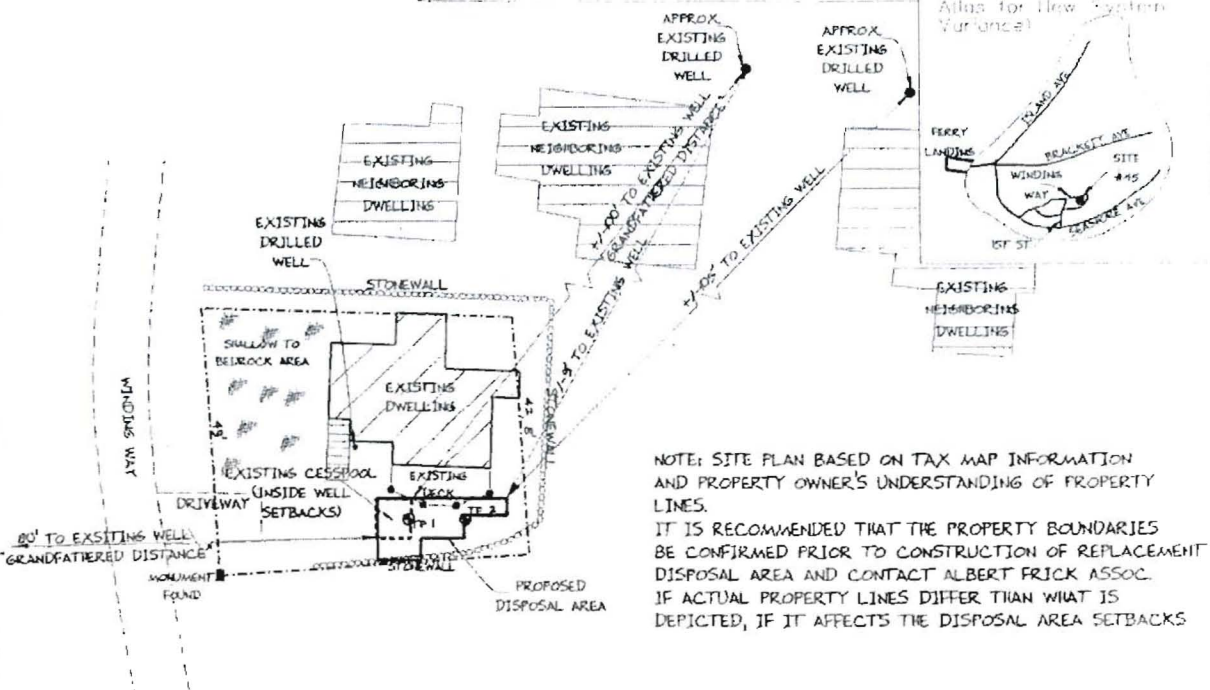 Atlas for New System
Variance)
APPROX
EXISTING
DRILLED
WELL
APPROX
EXISTING
DRILLED
WELL
INLAND AVE
FERRY
LANDING
BRACKETT AVE
SITE
#45
WINDING
WAY
SEASHORE AVE
1ST ST
EXISTING
NEIGHBORING
DWELLING
EXISTING
NEIGHBORING
DWELLING
+/-100' TO EXISTING WELL
GRANDFATHERED DISTANCE
TO EXISTING WELL
+/-105' TO EXISTING WELL
EXISTING
NEIGHBORING
DWELLING
EXISTING
DRILLED
WELL
STONEWALL
SHALLOW TO
BEDROCK AREA
EXISTING
DWELLING
STONEWALL
WINDING WAY
EXISTING CESSPOOL
(INSIDE WELL
SETBACKS)
EXISTING
DECK
TP 1
TP 2
DRIVEWAY
80' TO EXSITING WELL
"GRANDFATHERED DISTANCE"
MONUMENT
FOUND
STONEWALL
PROPOSED
DISPOSAL AREA
NOTE: SITE PLAN BASED ON TAX MAP INFORMATION
AND PROPERTY OWNER'S UNDERSTANDING OF PROPERTY
LINES.
IT IS RECOMMENDED THAT THE PROPERTY BOUNDARIES
BE CONFIRMED PRIOR TO CONSTRUCTION OF REPLACEMENT
DISPOSAL AREA AND CONTACT ALBERT FRICK ASSOC.
IF ACTUAL PROPERTY LINES DIFFER THAN WHAT IS
DEPICTED, IF IT AFFECTS THE DISPOSAL AREA SETBACKS